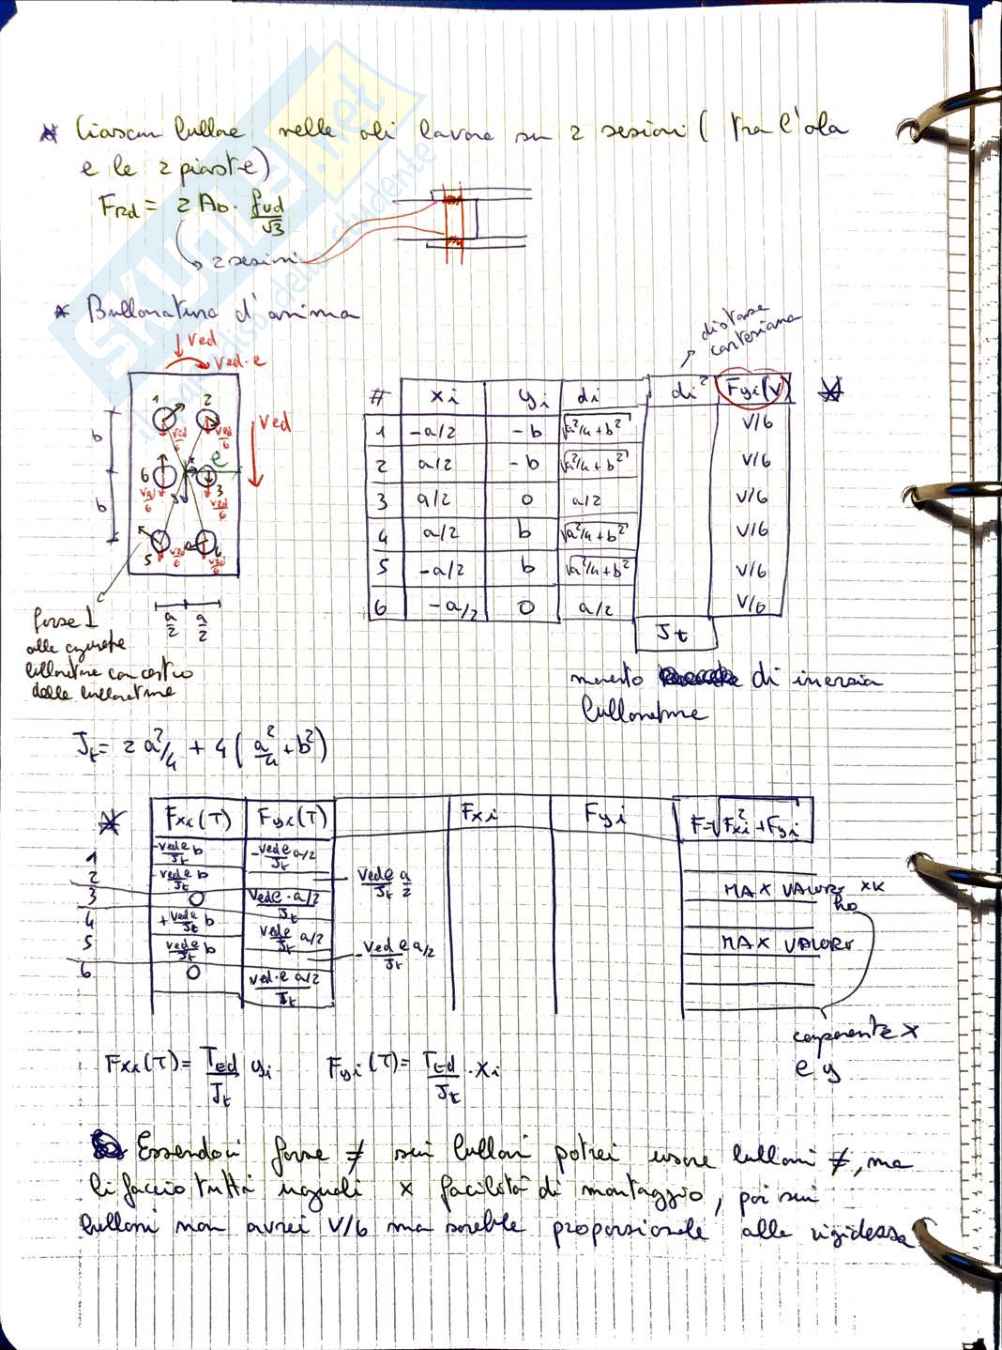 * Ciascun bullone nelle ali lavora su 2 sezioni ( tra l'ala
e le 2 piastre)
FRd = 2 Ab · fud/√3
→ 2 sezioni
* Bullonatura d'anima
distanze
cartesiana
Ved
Ved·e
Ved
b
b
1 2
6 3
5
e
a/2 a/2
forze ⊥
alle
bullonature con centro
delle bullonature
# xi yi di di² Fyi(V)
1 -a/2 -b √a²/4+b² V/6
2 a/2 -b √a²/4+b² V/6
3 a/2 0 a/2 V/6
4 a/2 b √a²/4+b² V/6
5 -a/2 b √a²/4+b² V/6
6 -a/2 0 a/2 V/6
Jt
momento di inerzia
bullonature
Jt = 2 a²/4 + 4 ( a²/4 + b² )
Fxi(T) Fyi(T) Fxi Fyi F=√Fxi²+Fyi²
1 -Ved e/Jt b -Ved e/Jt a/2
2 -Ved e/Jt b — Ved e/Jt a/2
3 0 Ved e·a/2/Jt
4 +Ved e/Jt b Ved e/Jt a/2
5 Ved e/Jt b -Ved e/Jt a/2
6 0 Ved·e a/2/Jt
MAX VALORE xk
ho
MAX VALORE
componente x
e y
Fxi(T) = Ted/Jt yi Fyi(T) = Ted/Jt · xi
Essendoci forze ≠ sui bulloni potrei usare bulloni ≠, ma
li faccio tutti uguali x facilità di montaggio, poi sui
bulloni non avrei V/6 ma sarebbe proporzionale alle rigidezze